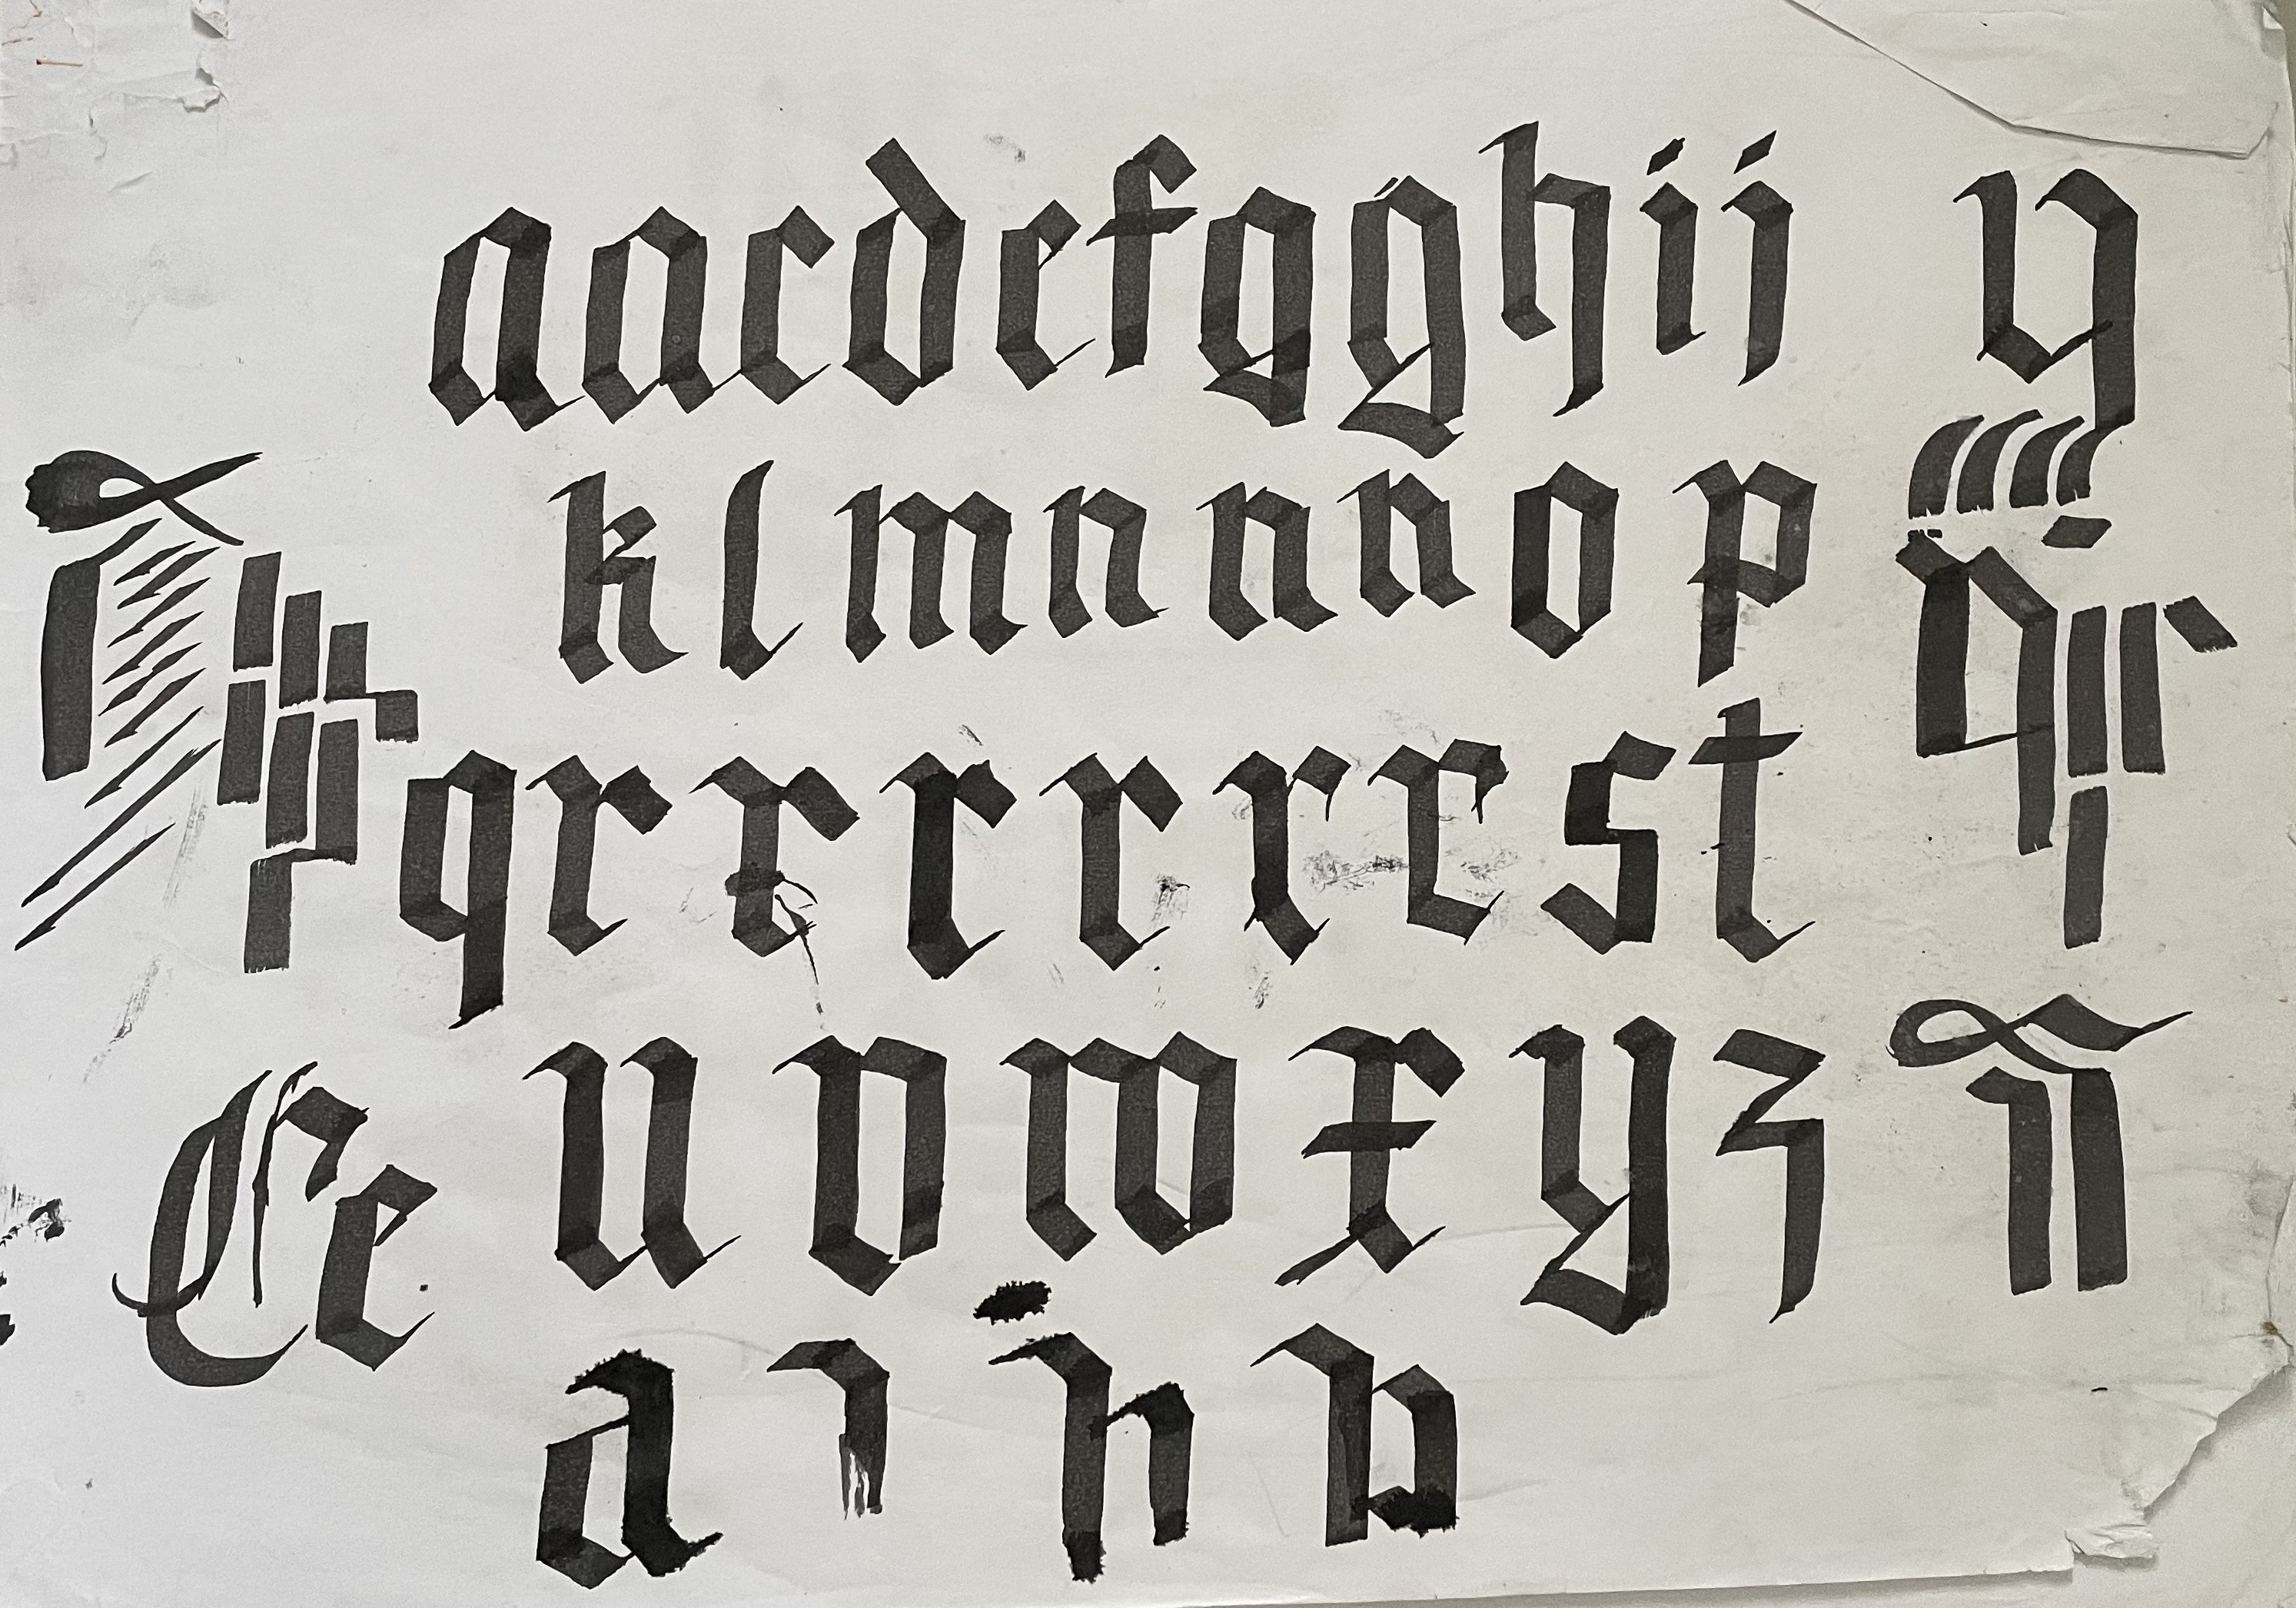 a a c d e f g g h i j y
k l m n n n o p
q r r r r r r s t
C e u v w x y z
a h